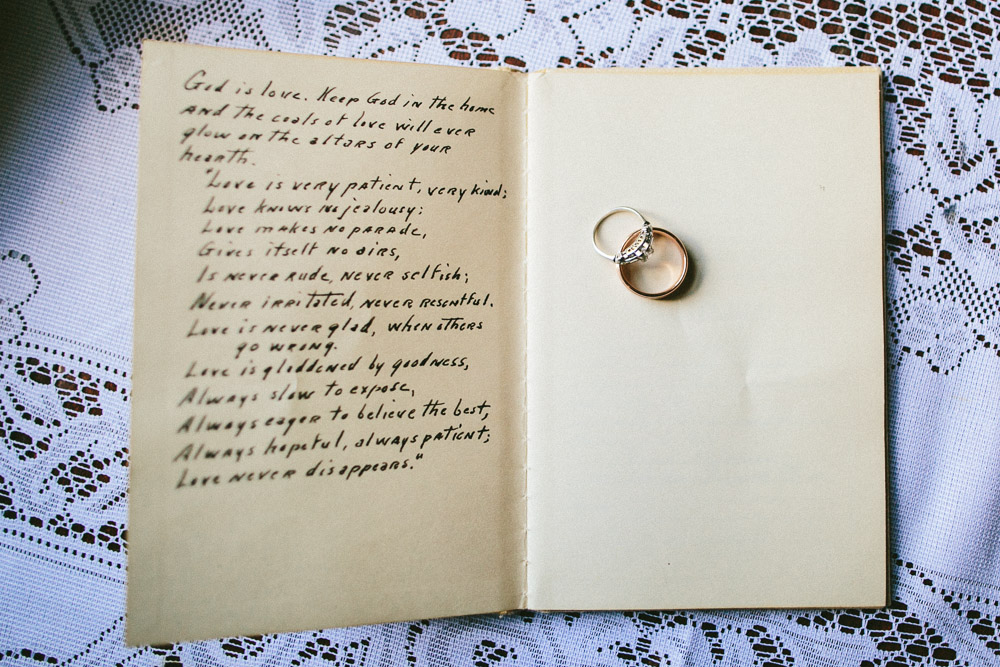 God is love. Keep God in the home
and the coals of love will ever
glow on the altars of your
hearth.
"Love is very patient, very kind;
Love knows no jealousy;
Love makes no parade,
Gives itself no airs,
Is never rude, never selfish;
Never irritated, never resentful.
Love is never glad, when others
go wrong.
Love is gladdened by goodness,
Always slow to expose,
Always eager to believe the best,
Always hopeful, always patient;
Love never disappears."